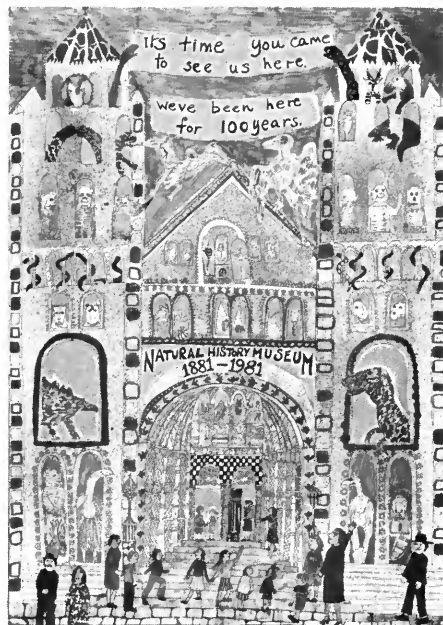 its time you came
to see us here.
weve been here
for 100 years.
NATURAL HISTORY MUSEUM
1881-1981